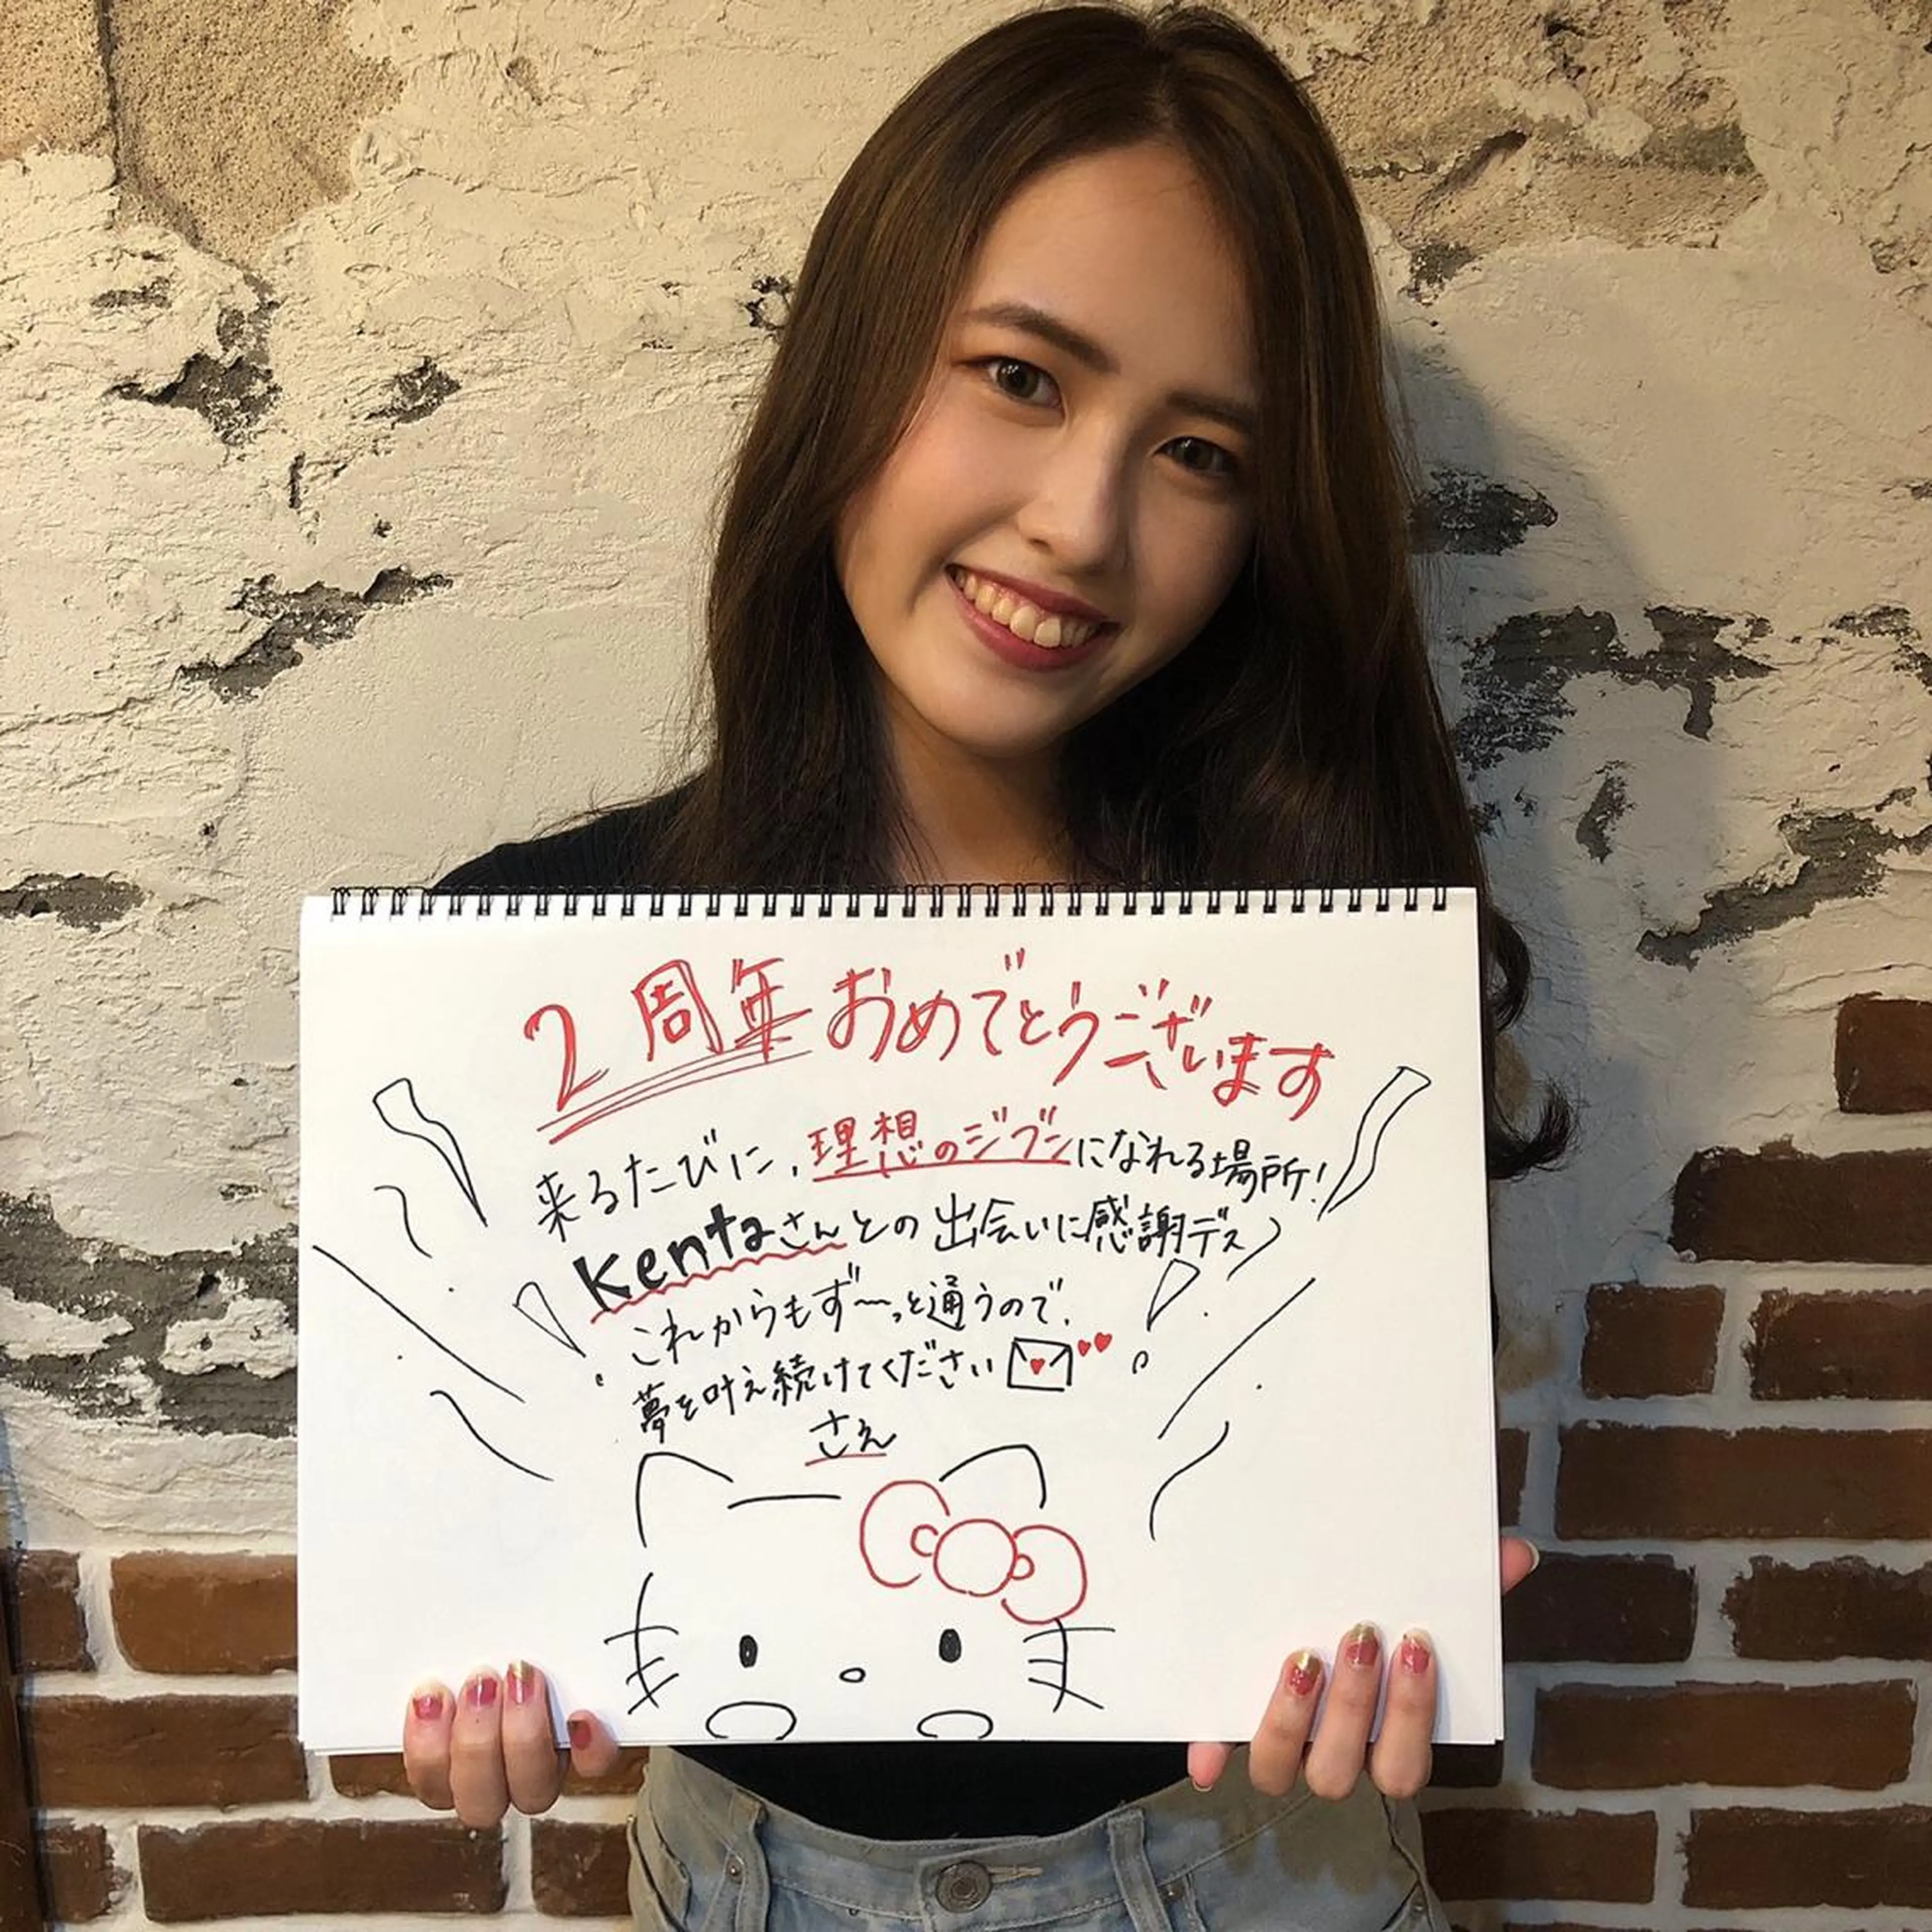 2周年おめでとうございます
来るたびに、理想のジブンになれる場所！
Kentaさんとの出会いに感謝デス
これからもず〜っと通うので、
夢を叶え続けてください
さえ